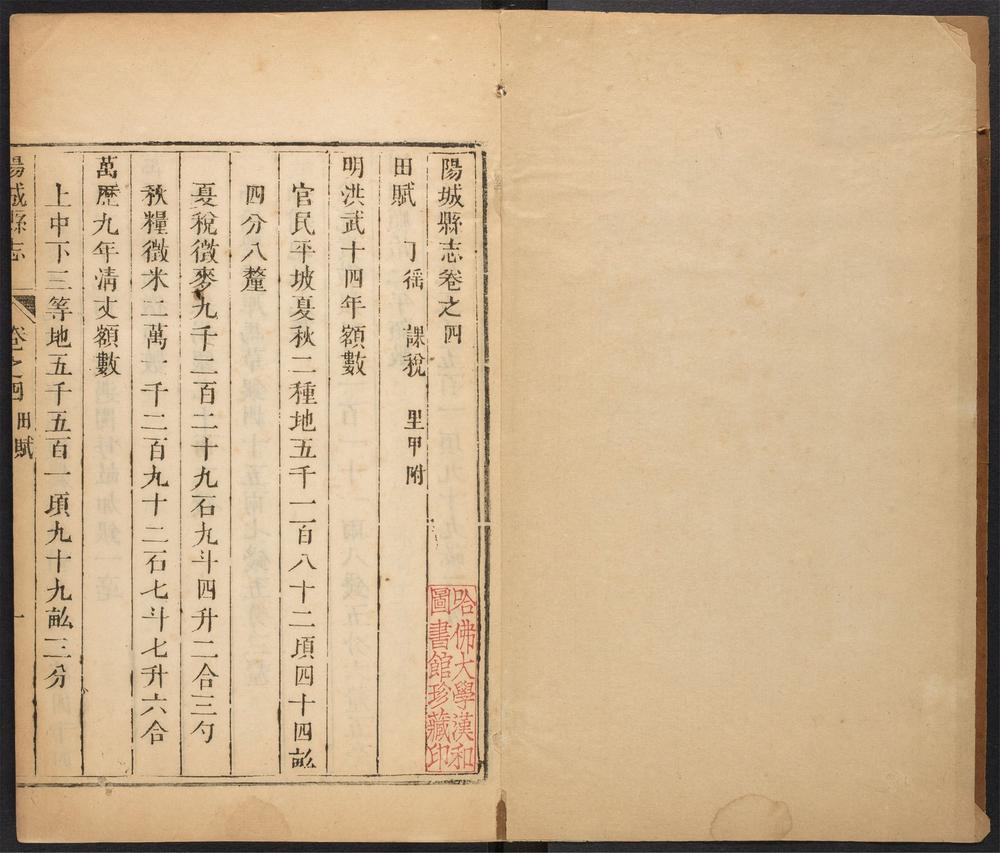 陽城縣志卷之四
田賦 丁徭 課稅 里甲附
明洪武十四年額數
官民平坡夏秋二種地五千一百八十二頃四十四畝
四分八釐
夏稅徵麥九千二百二十九石九斗四升二合三勺
秋糧徵米二萬一千二百九十二石七斗七升六合
萬歷九年清丈額數
上中下三等地五千五百一頃九十九畝三分
陽城縣志 卷之四 田賦 一
哈佛大學漢和
圖書館珍藏印